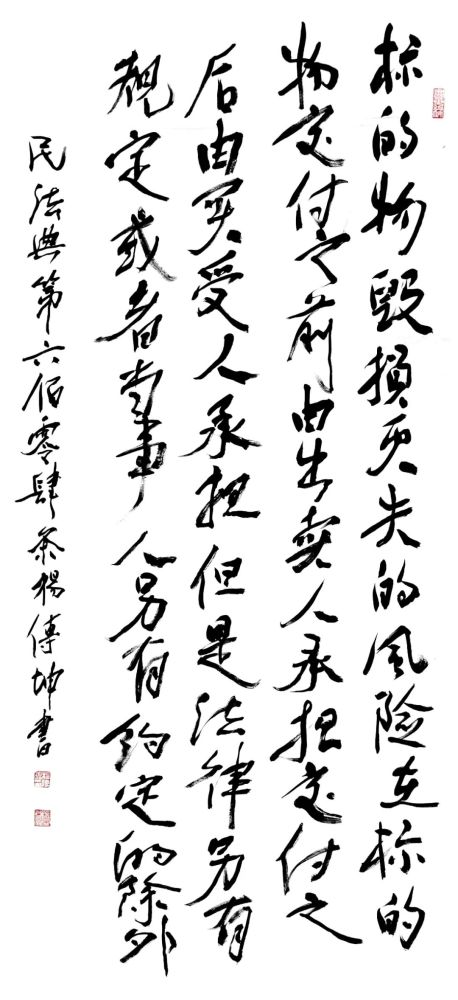 标的物毁损灭失的风险在标的
物交付之前由出卖人承担交付之
后由买受人承担但是法律另有
规定或者当事人另有约定的除外
民法典第六佰零肆条杨傳坤書